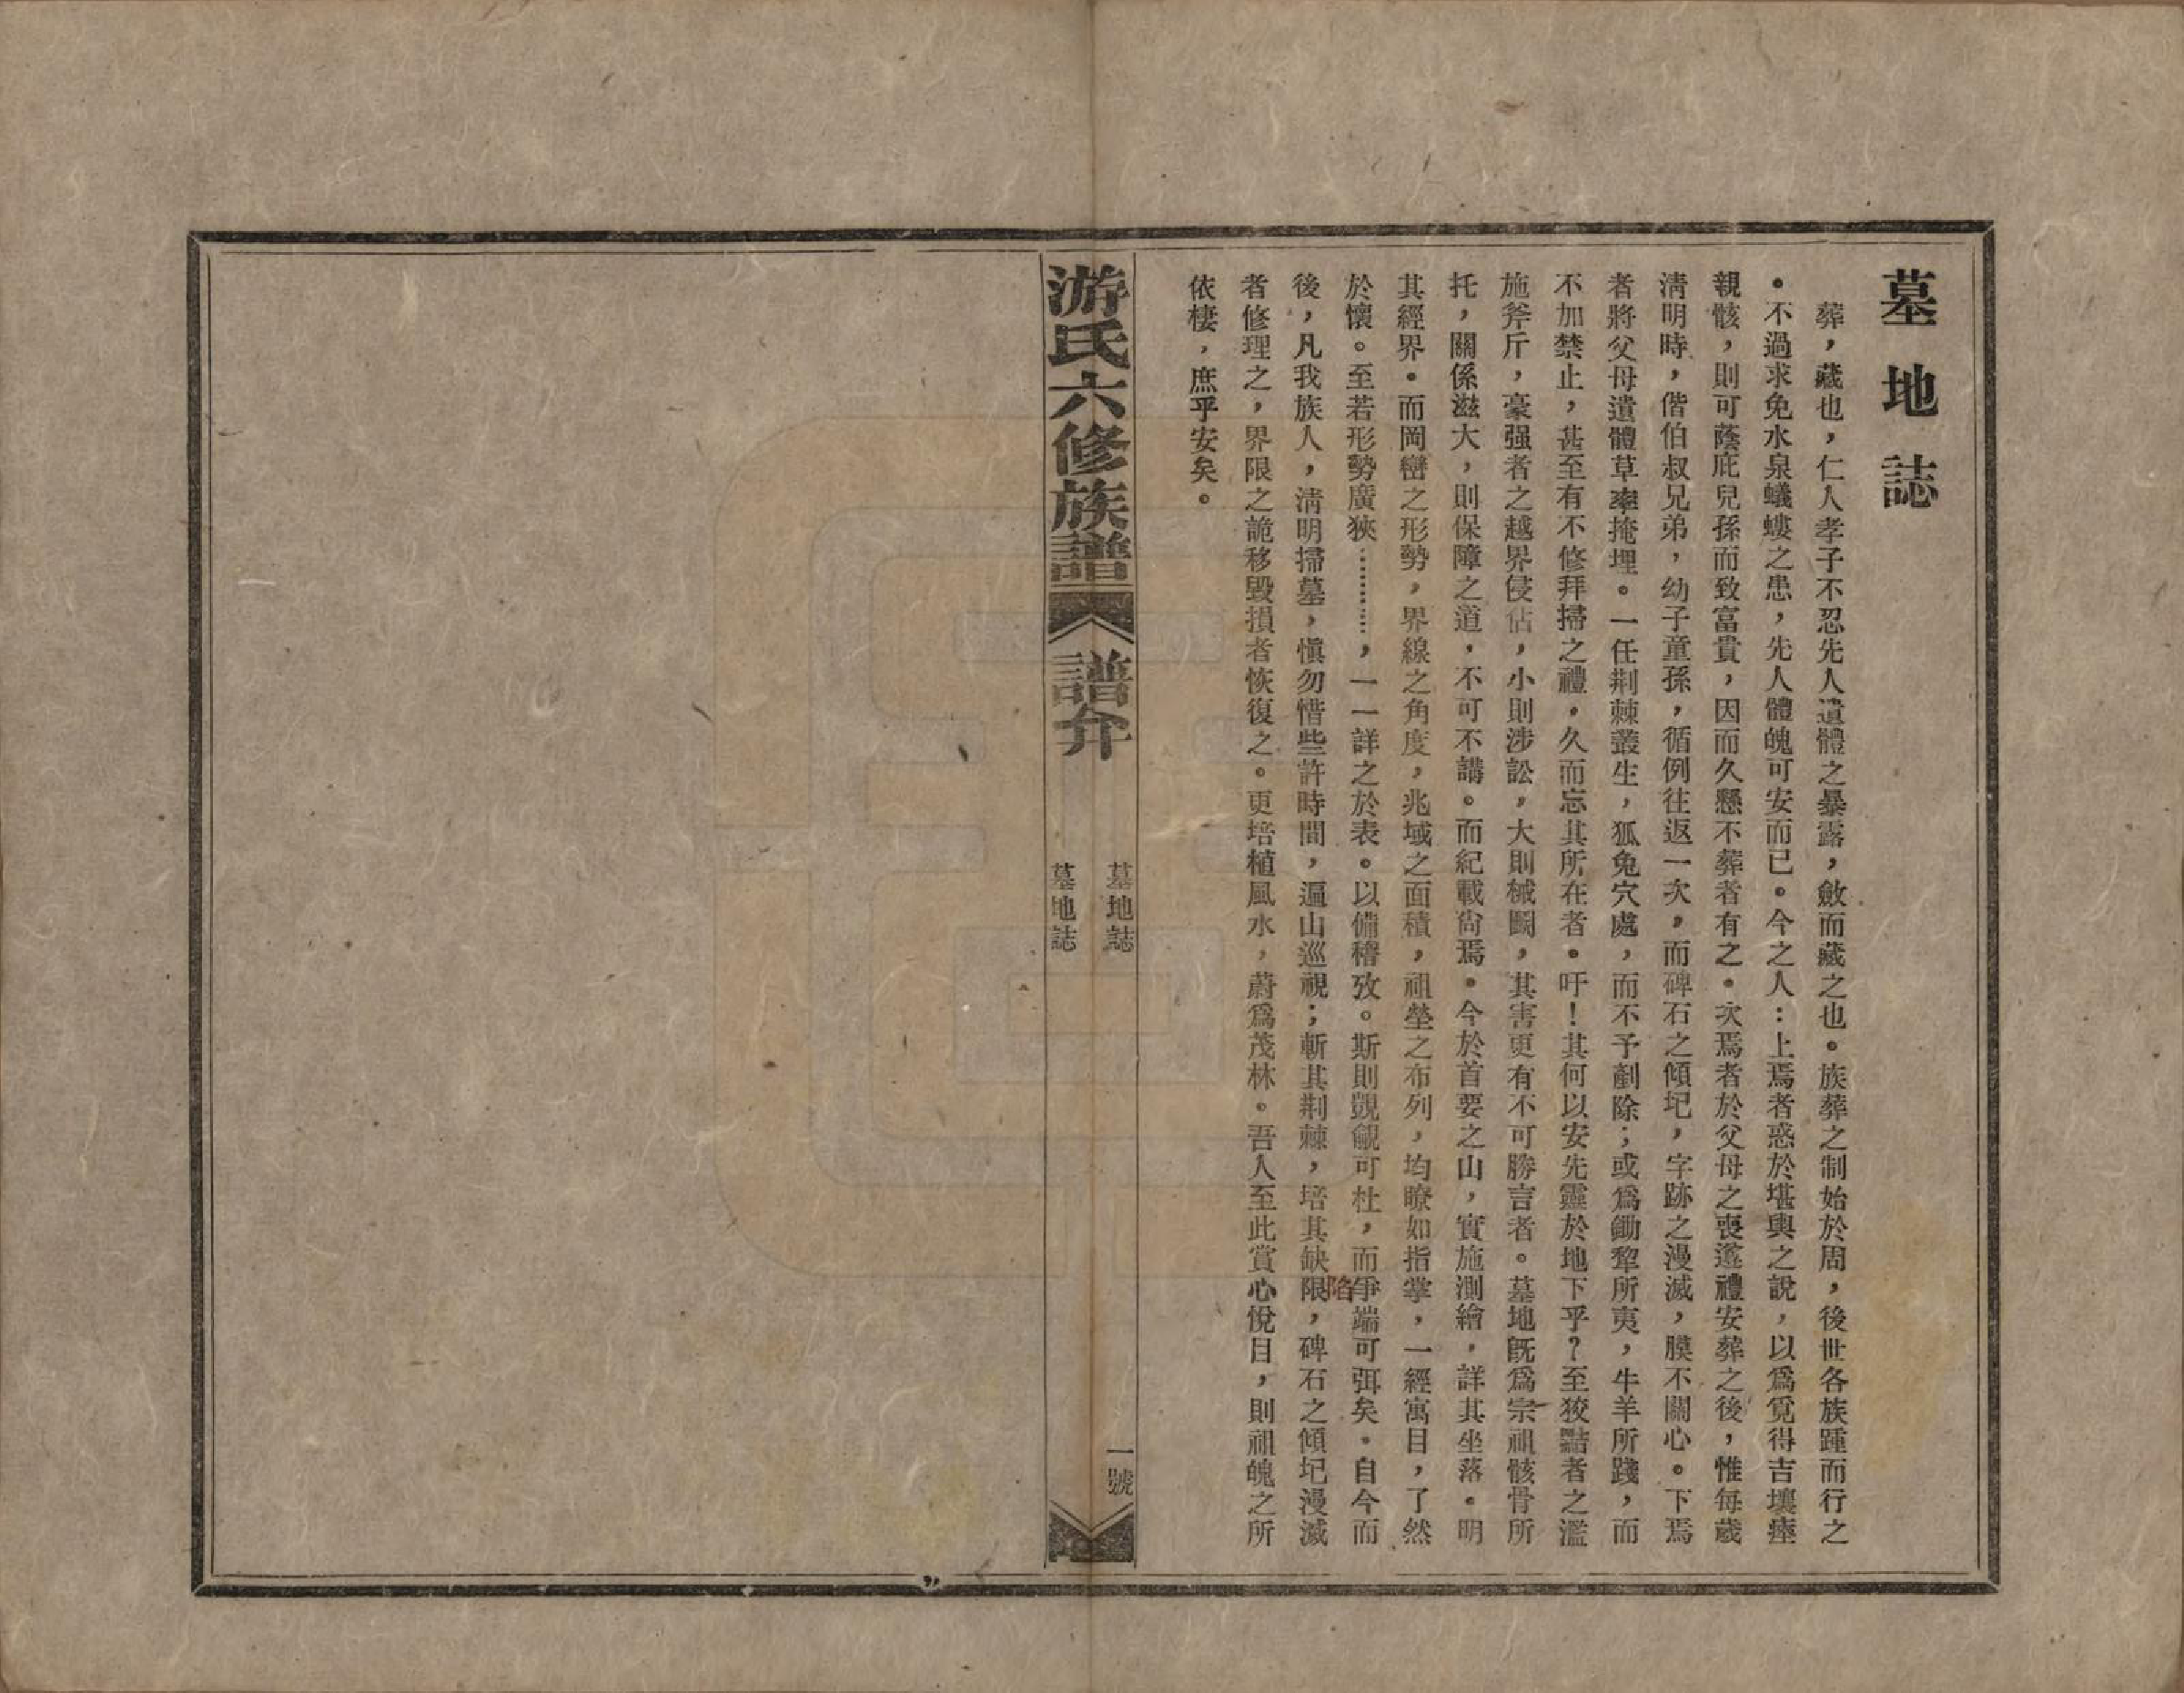 墓地誌
葬，藏也，仁人孝子不忍先人遺體之暴露，斂而藏之也。族葬之制始於周，後世各族踵而行之
。不過求免水泉蟻螻之患，先人體魄可安而已。今之人：上焉者惑於堪輿之說，以爲覓得吉壤瘞
親骸，則可蔭庇兒孫而致富貴，因而久懸不葬者有之。次焉者於父母之喪遂禮安葬之後，惟每歲
淸明時，偕伯叔兄弟，幼子童孫，循例往返一次，而碑石之傾圮，字跡之漫滅，膜不關心。下焉
者將父母遺體草率掩埋。一任荆棘叢生，狐兔穴處，而不予剷除；或爲鋤犂所夷，牛羊所踐，而
不加禁止，甚至有不修拜掃之禮，久而忘其所在者。吁！其何以安先靈於地下乎？至狡黠者之濫
施斧斤，豪强者之越界侵佔，小則涉訟，大則械鬬，其害更有不可勝言者。墓地旣爲宗祖骸骨所
托，關係滋大，則保障之道，不可不講。而紀載尙焉。今於首要之山，實施測繪，詳其坐落。明
其經界。而岡巒之形勢，界線之角度，兆域之面積，祖塋之布列，均瞭如指掌，一經寓目，了然
於懷。至若形勢廣狹…………，一一詳之於表。以備稽攷。斯則覬覦可杜，而爭端可弭矣。自今而
後，凡我族人，淸明掃墓，愼勿惜些許時間，遍山巡視；斬其荆棘，培其缺限，碑石之傾圮漫滅
陷
者修理之，界限之詭移毀損者恢復之。更培植風水，蔚爲茂林。吾人至此賞心悅目，則祖魄之所
依棲，庶乎安矣。
游氏六修族譜
譜弁
墓地誌
墓地誌
一號